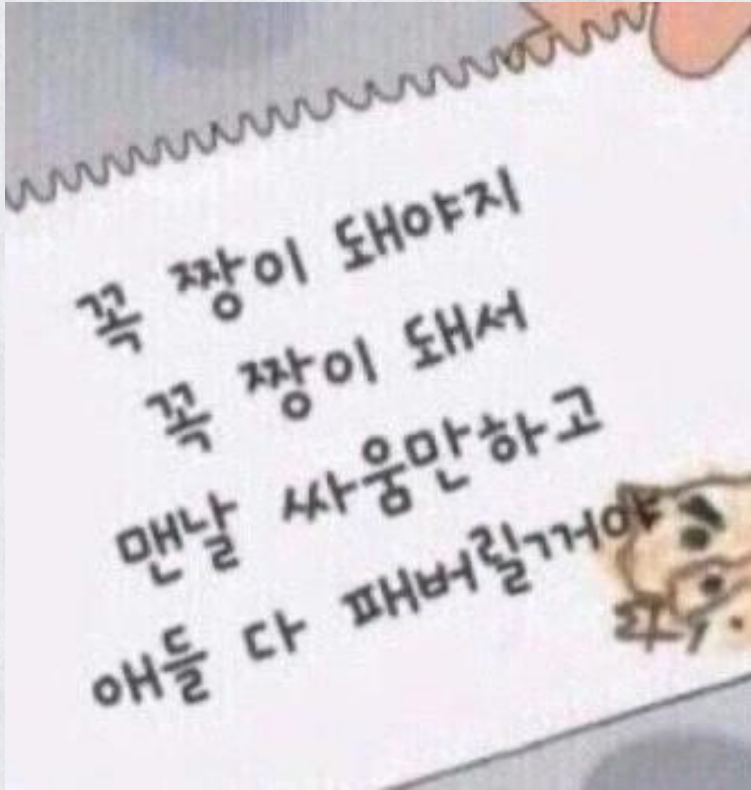 꼭 짱이 돼야지
꼭 짱이 돼서
맨날 싸움만하고
애들 다 패버릴꺼야